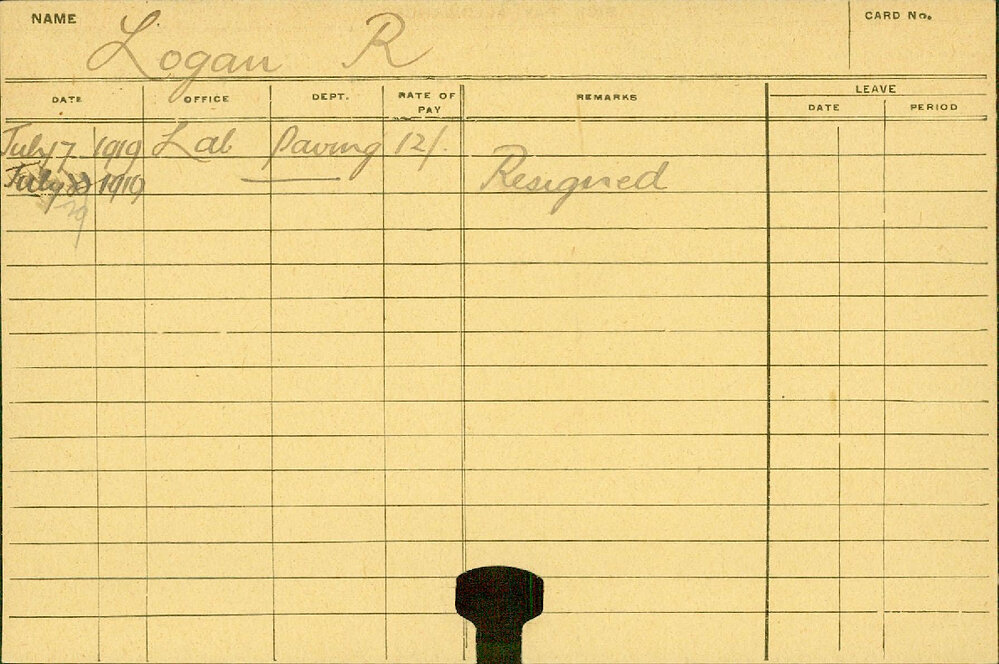 NAME Logan R CARD No.
DATE OFFICE DEPT. RATE OF PAY REMARKS LEAVE
DATE PERIOD
July 7 1919 Lab Paving 12/.
July 1919 Resigned
29